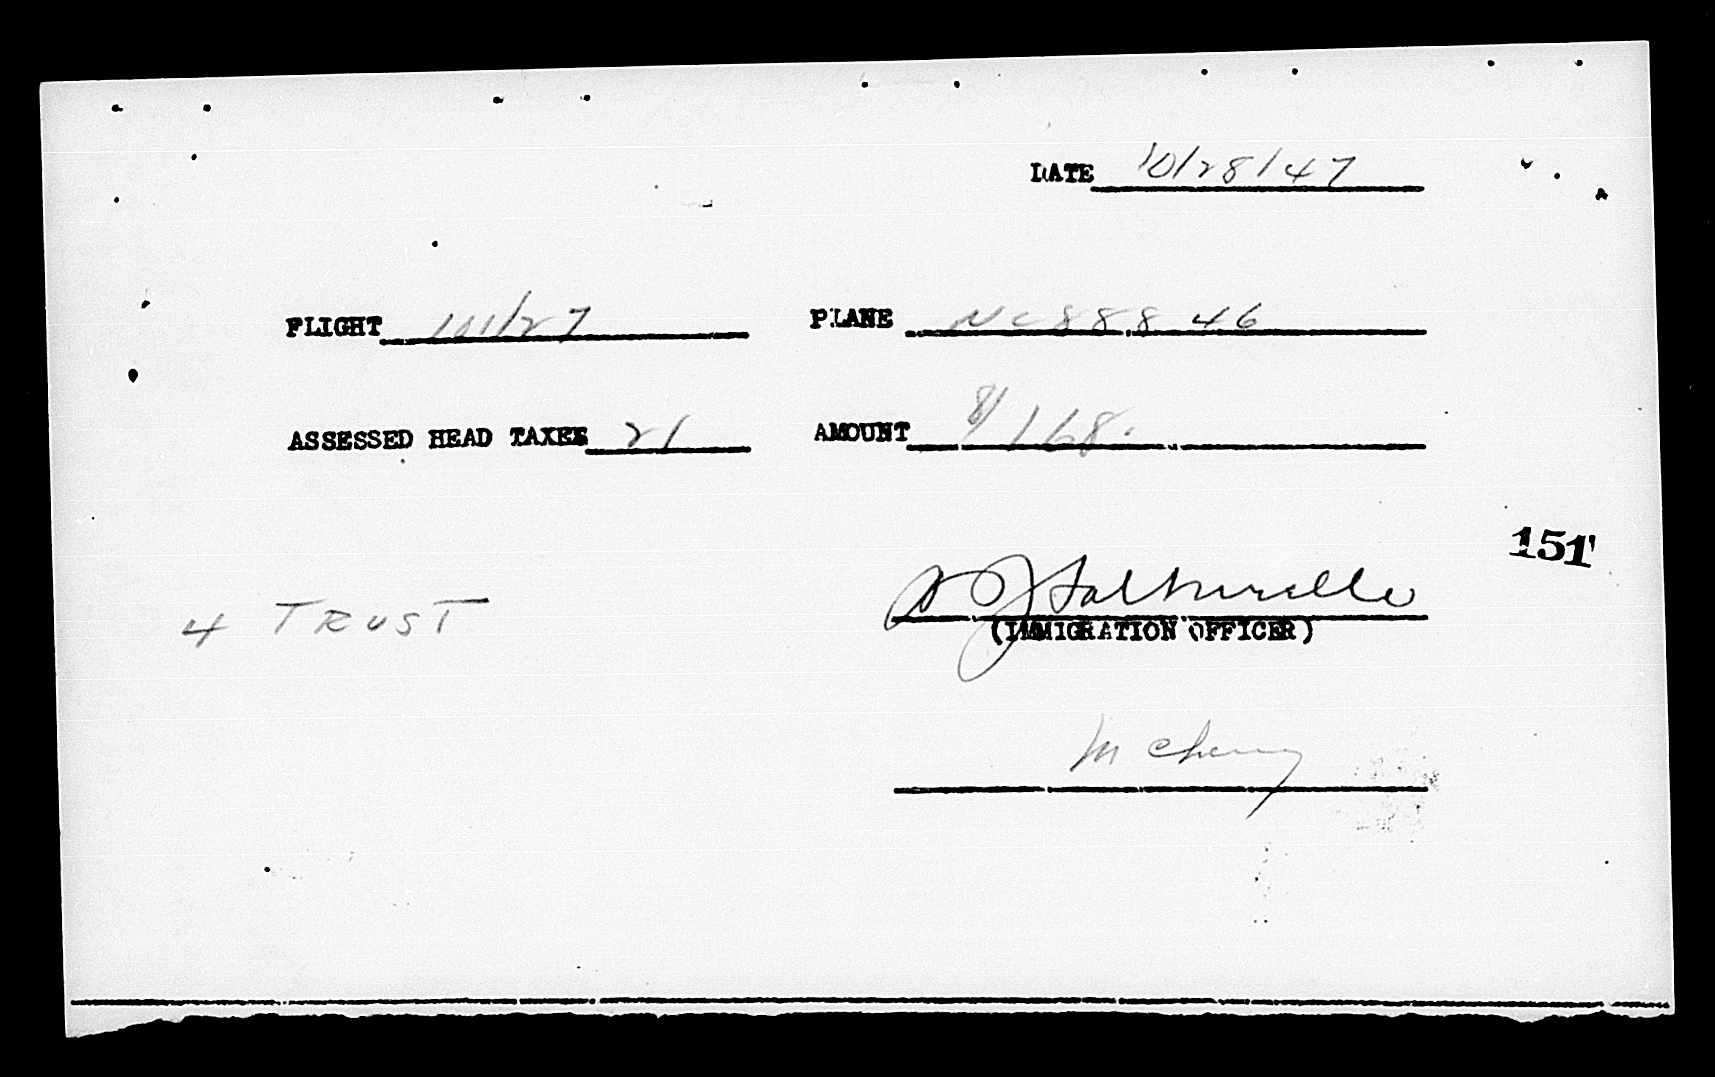 DATE 10/28/47
FLIGHT 101/27 PLANE NC88846
ASSESSED HEAD TAXES 21 AMOUNT $168.
151
4 TRUST
(IMMIGRATION OFFICER)